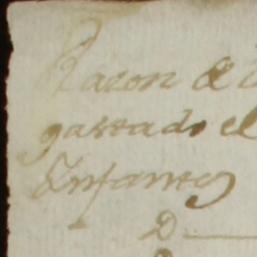 Razon de
gastado el
Infantes
D